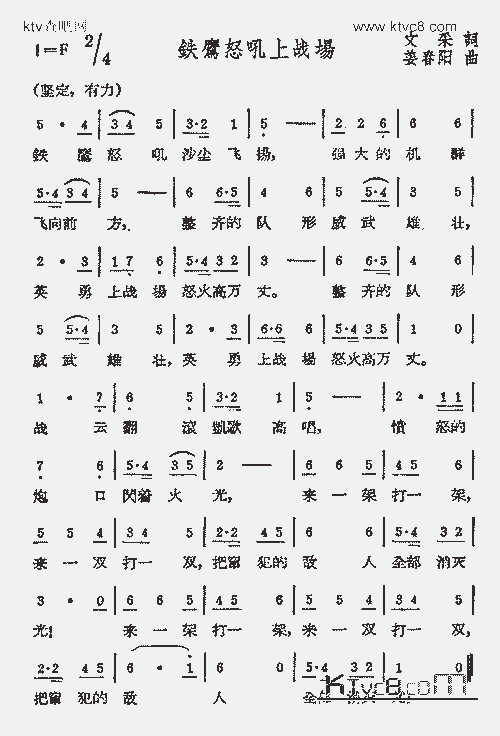 ktv吉吧网
www.ktvc8.com
1=F 2/4
鉄鷹怒吼上战場
文采 詞
姜春阳 曲
(坚定，有力)
5 · 4 | 3 4 5 | 3·2 1 | 5 — | 2 2 6 | 6 6 |
鉄 鷹 怒 吼 沙尘 飞 扬， 强大的 机 群
5·4 3 4 | 5 — | 6 6·5 | 4 6 | 5 5·4 | 3 5 |
飞向前 方， 整 齐的 队 形 威 武 雄 壮，
2 · 3 | 1 7 6 | 5·4 3 2 | 3 — | 6 6·5 | 4 6 |
英 勇 上战 場 怒火高万 丈。 整 齐的 队 形
5 5·4 | 3 5 | 2 · 3 | 6·6 6 | 5·4 3 5 | 1 0 |
威 武 雄 壮，英 勇 上战 場 怒火高万 丈。
1 · 7 | 6 5 | 3·2 1 | 5 — | 2 · 1 1 |
战 云 翻 滚 凱歌 高 唱， 愤 怒的
7 6 | 5·4 3 5 | 5 — | 6 6 5 | 4 5 6 |
炮 口 閃着 火 光， 来 一 架 打 一 架，
5 5 4 | 3 4 5 | 2·2 4 5 | 6 6 | 5·4 3 2 |
来 一 双 打 一 双，把窜 犯的 敌 人 全部 消灭
3 · 0 | 6 6 5 | 4 5 6 | 5 5 4 | 3 4 5 |
光！ 来 一 架 打 一 架，来 一 双 打 一 双，
2·2 4 5 | 6 · 1 | 6 0 | 5·4 3 2 | 1 0 ‖
把窜 犯的 敌 人 全部
KTvc8.com